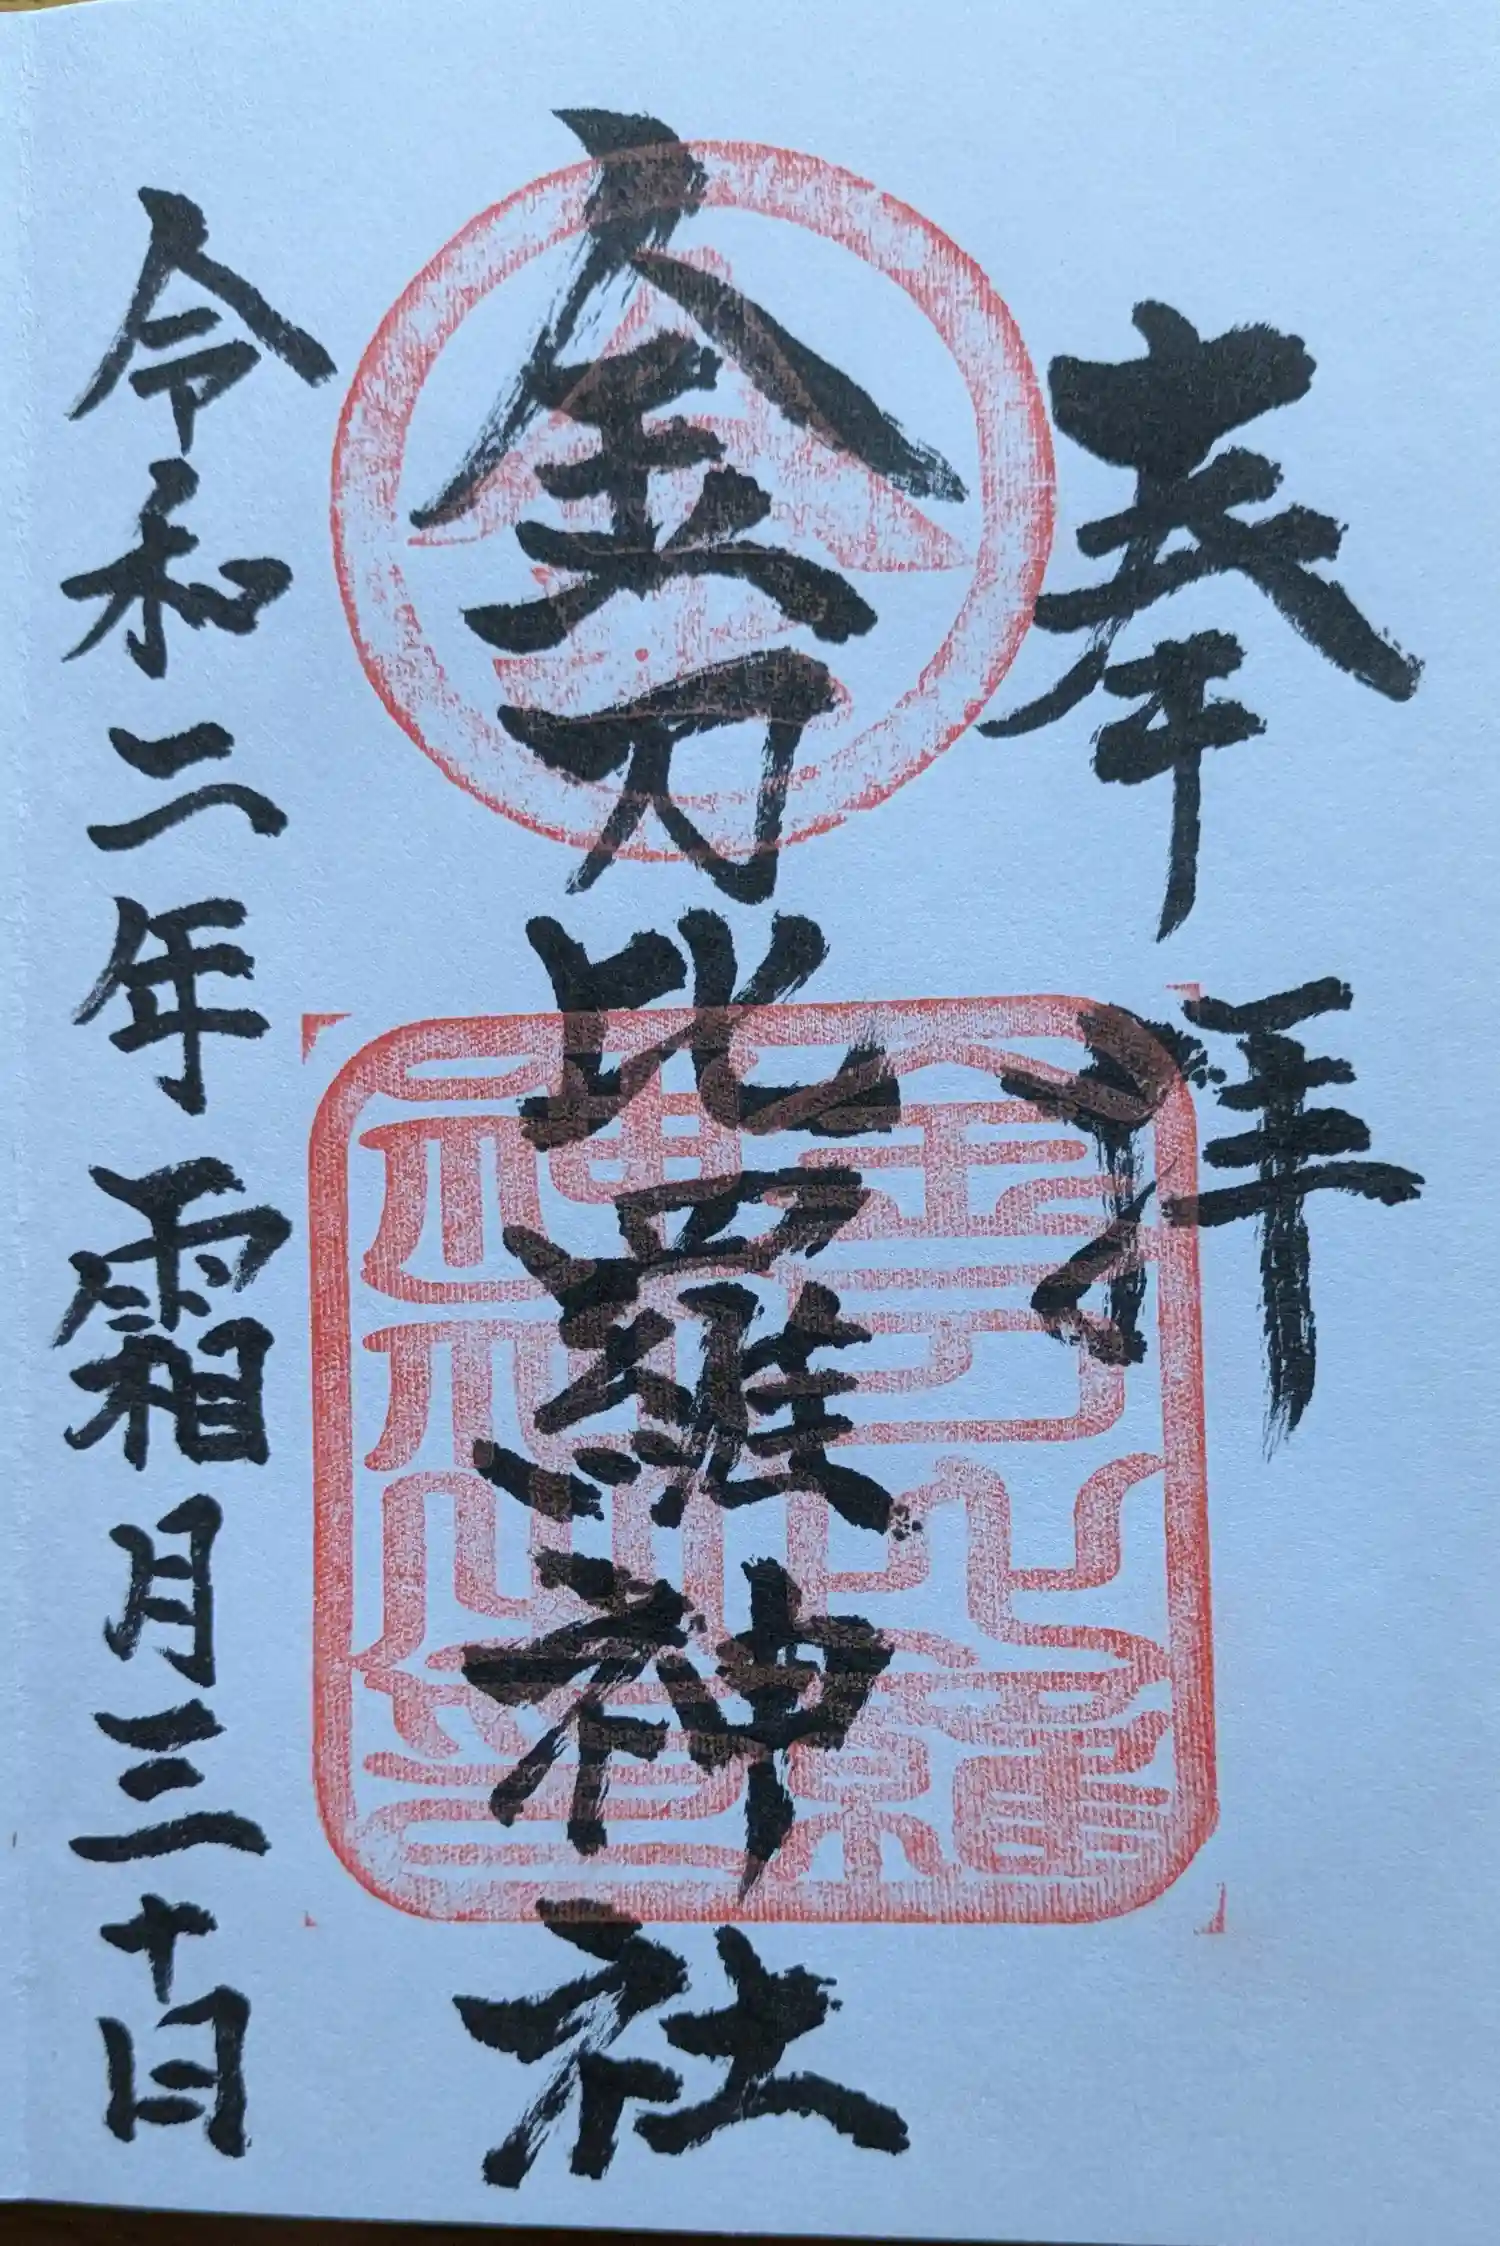 奉拝
金刀比羅神社
令和二年霜月三十日
金刀比羅
神社之印